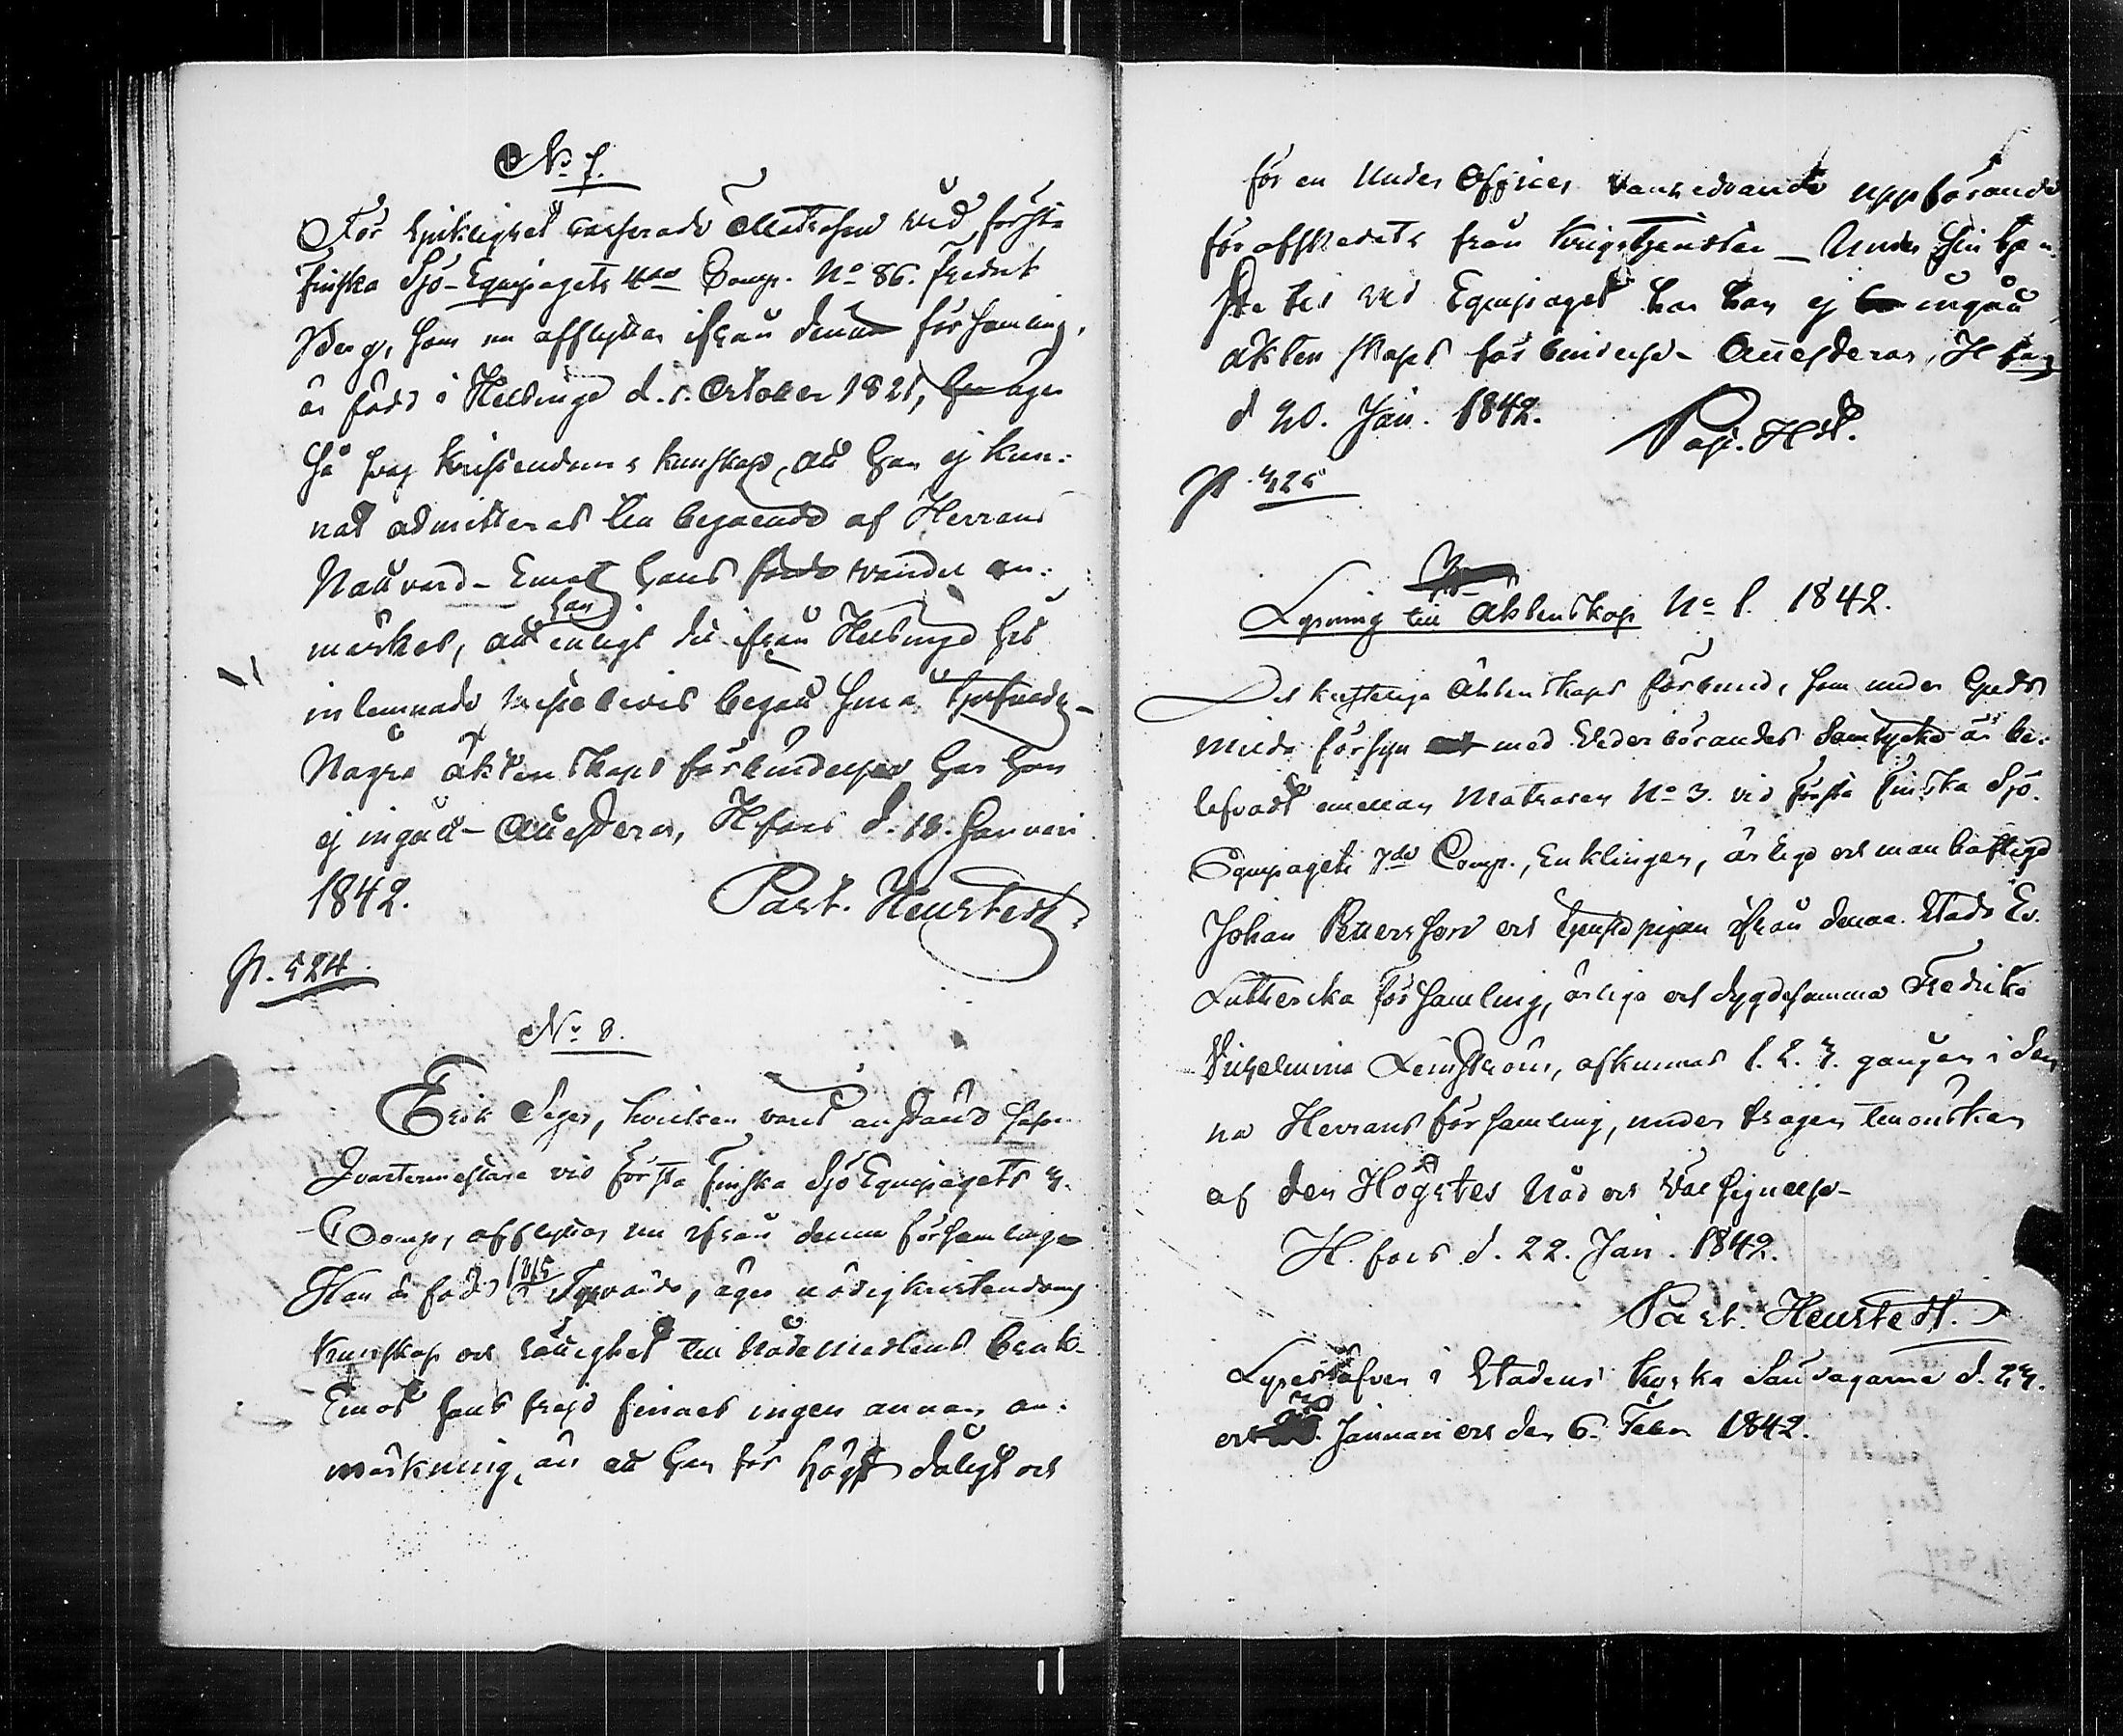 No 7.
För sjuklighet casserade Matrosen vid första
Finska Sjö-Equipagets 4de Comp. No 86. Fredrik
Berg, som nu afflyttar ifrån denna församling,
är född i Helsinge d. 5. October 1821, äger
så svag kristendoms kunskap, att han ej kun-
nat admitteras till begående af Herrans
Nattvard - Emot hans vandel an-
märkes, att han enligt det ifrån Helsinge hit
inlemnade bevis begått små tjufnader -
Några äktenskaps förbindelser har han
ej ingått - Attesteras, Hfors d. 18. Januari
1842. Past. Heurstedt
p. 524.
No 8.
Erik Seger, hvilken varit anstäld såsom
Qvartermästare vid första Finska Sjö Equipagets 3.
Comp, afflyttar nu ifrån denna församling
Han är född 1815 i Tyrvändö, äger nödig kristendoms
kunskap och rättighet till Nådemedlens bruk.
Emot hans frejd finnes ingen annan an-
märkning, än att han för högst dåligt och
för en Under Officer vanhedrande uppförande
för afskedats från Krigstjensten - Under sin tjen-
ste tid vid Equipaget har han ej ingått
äktenskaps förbindelse - Attesteras, Hfors
d 20. Jan. 1842. Past. Hdt.
p. 425
Lysning till Äktenskap No 1. 1842.
Det kristeliga Äktenskaps förbund, som under Guds
milda försyn med Vederbörandes Samtycke är be-
lefvadt emellan Matrosen No 3. vid Första Finska Sjö-
Equipagets 7de Comp., Enklingen, ärlige och manhaftige
Johan Pettersson och tjenstepigan ifrån denna Stads Ev.
Lutherska församling, ärliga och dygdesamma Fredrika
Vilhelmina Lemström, afkunnas 1. 2. 3. gången i den-
na Herrans församling, under trogen tillönskan
af den Högstes Nåd och Välsignelse -
H.fors d. 22. Jan. 1842.
Past. Heurstedt.
i Stadens kyrka Söndagarne d. 23.
och 30. Januari och den 6. Febr 1842.